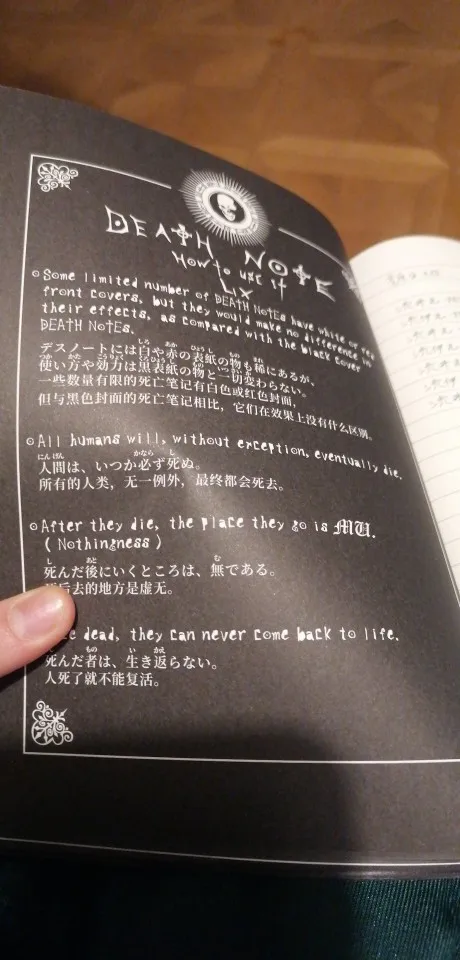 DEATH NOTE
How to use it
LIX
Some limited number of DEATH NOTEs have white or red
front covers, but they would make no difference in
their effects, as compared with the black cover
DEATH NOTEs.
デスノートには白や赤の表紙の物も稀にあるが、
使い方や効力は黒表紙の物と一切変わらない。
一些数量有限的死亡笔记有白色或红色封面,
但与黑色封面的死亡笔记相比，它们在效果上没有什么区别。
All humans will, without exception, eventually die.
人間は、いつか必ず死ぬ。
所有的人类，无一例外，最终都会死去。
After they die, the place they go is MU.
(Nothingness)
死んだ後にいくところは、無である。
后去的地方是虚无。
dead, they can never come back to life.
死んだ者は、生き返らない。
人死了就不能复活。